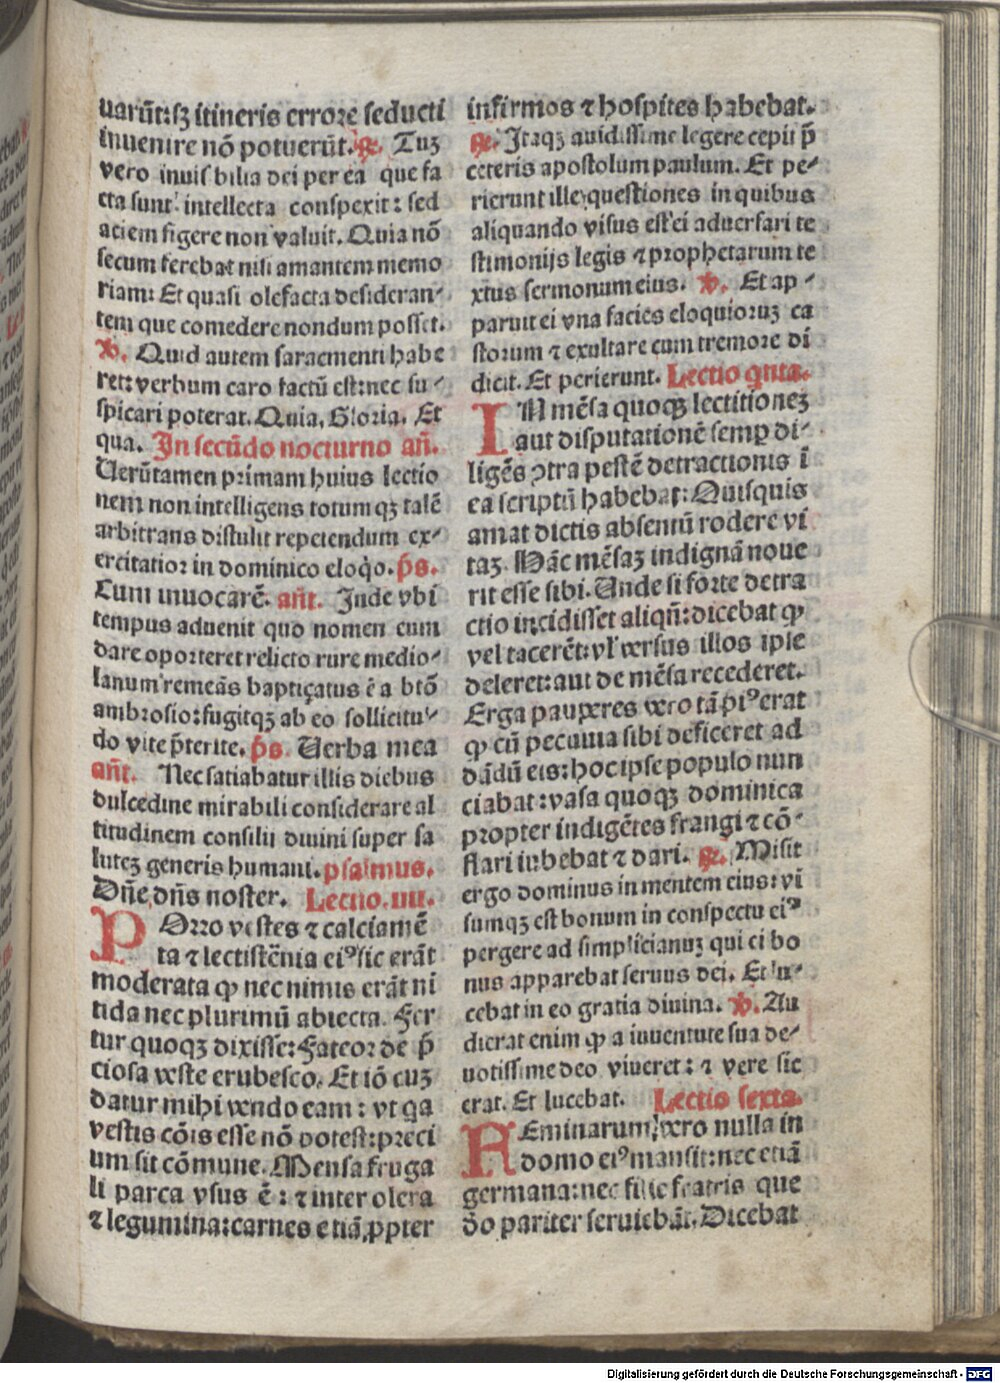 uarūt:sꝫ itineris errore seducti
inuenire nō potuerūt. ℟. Tuꝫ
vero inuisibilia dei per ea que fa
cta sunt intellecta conspexit: sed
aciem figere non valuit. Quia nō
secum ferebat nisi amantem memo
riam: Et quasi olefacta desideran⸗
tem que comedere nondum posset.
℣. Quid autem sacramenti habe
ret: verbum caro factū est: nec su⸗
spicari poterat. Quia. Gloria. Et
qua. In secūdo nocturno añ.
Uerūtamen primam huius lectio
nem non intelligens totum qꝫ talē
arbitrans distulit repetendum ex⸗
ercitatior in dominico eloq̇o. p̄s.
Cum inuocarē. añt. Inde vbi
tempus aduenit quo nomen eum
dare oporteret relicto rure medio⸗
lanum remeās baptiçatus ē a btō
ambrosio: fugitqꝫ ab eo sollicitu⸗
do vite p̄terite. p̄s Uerba mea
añt. Nec satiabatur illis diebus
dulcedine mirabili considerare al
titudinem consilii diuini super sa
luteꝫ generis humani. psalmus.
Dñe dñs noster. Lectio.iiii.
POrro vestes ⁊ calciamē
ta ⁊ lectistēnia eiꝰ sic erāt
moderata ꝙ nec nimis erāt ni
tida nec plurimū abiecta. Fer
tur quoqꝫ dixisse: Fateor de p̄
ciosa veste erubesco. Et iō cuꝫ
datur mihi vendo eam: vt qa
vestis cōis esse nō potest: preci
um sit cōmune. Mensa fruga
li parca vsus ē: ⁊ inter olera
⁊ legumina: carnes etiā ꝓpter
infirmos ⁊ hospites habebat.
℟. Itaqꝫ auidissime legere cepit p̄
ceteris apostolum paulum. Et pe⸗
rierunt ille questiones in quibus
aliquando visus est ei aduersari te
stimonijs legis ⁊ prophetarum te
xtus sermonum eius. ℣. Et ap⸗
paruit ei vna facies eloquioruꝫ ca
storum ⁊ exultare cum tremore di
dicit. Et perierunt. Lectio qnta.
IN mēsa quoqꝫ lectitioneꝫ
aut disputationē semꝑ di⸗
ligēs ꝯtra pestē detractionis ī
ea scriptū habebat: Quisquis
amat dictis absentū rodere vi
taꝫ. Hāc mēsaꝫ indignā noue
rit esse sibi. Unde si forte detra
ctio incidisset aliqñ: dicebat ꝙ
vel tacerēt: vl̓ versus illos ipse
deleret: aut de mēsa recederet.
Erga pauperes vero tā piꝰ erat
ꝙ cū pecunia sibi deficeret ad
dādū eis: hoc ipse populo nun
ciabat: vasa quoqꝫ dominica
propter indigētes frangi ⁊ cō⸗
flari iubebat ⁊ dari. ℟. Misit
ergo dominus in mentem eius: vi
sumqꝫ est bonum in conspectu eiꝰ
pergere ad simplicianuꝫ qui ei bo
nus apparebat seruus dei. Et lu⸗
cebat in eo gratia diuina. ℣. Au
dierat enim ꝙ a iuuentute sua de⸗
uotissime deo viueret: ⁊ vere sic
erat. Et lucebat. Lectio sexta.
FEminarum vero nulla in
domo eiꝰ mansit: nec etiā
germana: nec filie fratris que
d̄o pariter seruiebāt. Dicebat
Digitalisierung gefördert durch die Deutsche Forschungsgemeinschaft - DFG